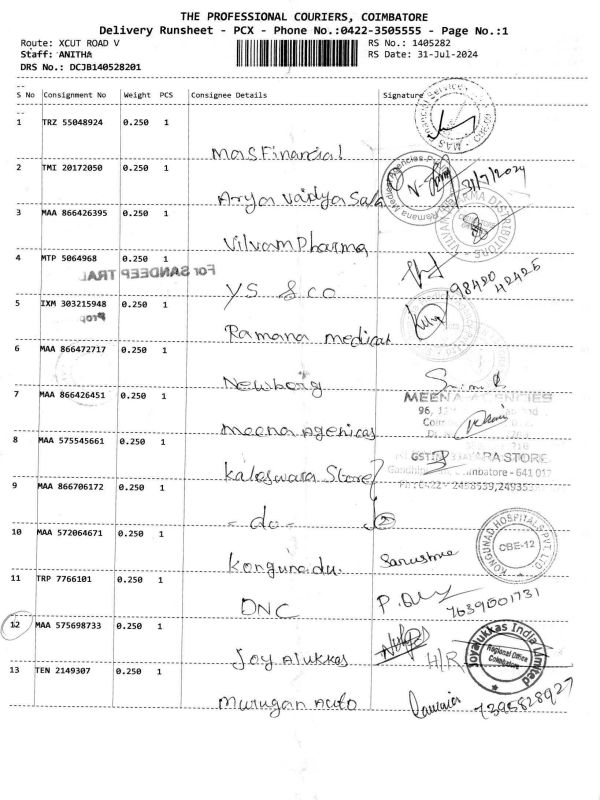 THE PROFESSIONAL COURIERS, COIMBATORE
Delivery Runsheet - PCX - Phone No.:0422-3505555 - Page No.:1
Route: XCUT ROAD V RS No.: 1405282
Staff: ANITHA RS Date: 31-Jul-2024
DRS No.: DCJB140528201
S No Consignment No Weight PCS Consignee Details Signature
1 TRZ 55048924 0.250 1
Mas Financial
2 TMI 20172050 0.250 1
Arya Vaidya Sala
3 MAA 866426395 0.250 1
Vilvam Pharma
4 MTP 5064968 0.250 1
For SANDEEP TRA
YS & CO 98420 42425
5 IXM 303215948 0.250 1
Prop
Ramana medical
6 MAA 866472717 0.250 1
Newborg
7 MAA 866426451 0.250 1
MEENA AGENCIES
96,
Meena Agenicas
8 MAA 575545661 0.250 1
GSTIN ARA STORE
Kaleswara Store
- 641 012
9 MAA 866706172 0.250 1
- do - 2
10 MAA 572064671 0.250 1
KONGUNAD HOSPITALS PVT LTD
CBE-12
Kongunadu.
11 TRP 7766101 0.250 1
DNC 7639001731
12 MAA 575698733 0.250 1
Joyalukkas India Limited
Regional Office
Coimbatore
Joy Alukkas H/R
13 TEN 2149307 0.250 1
Murugan Auto 7395828927